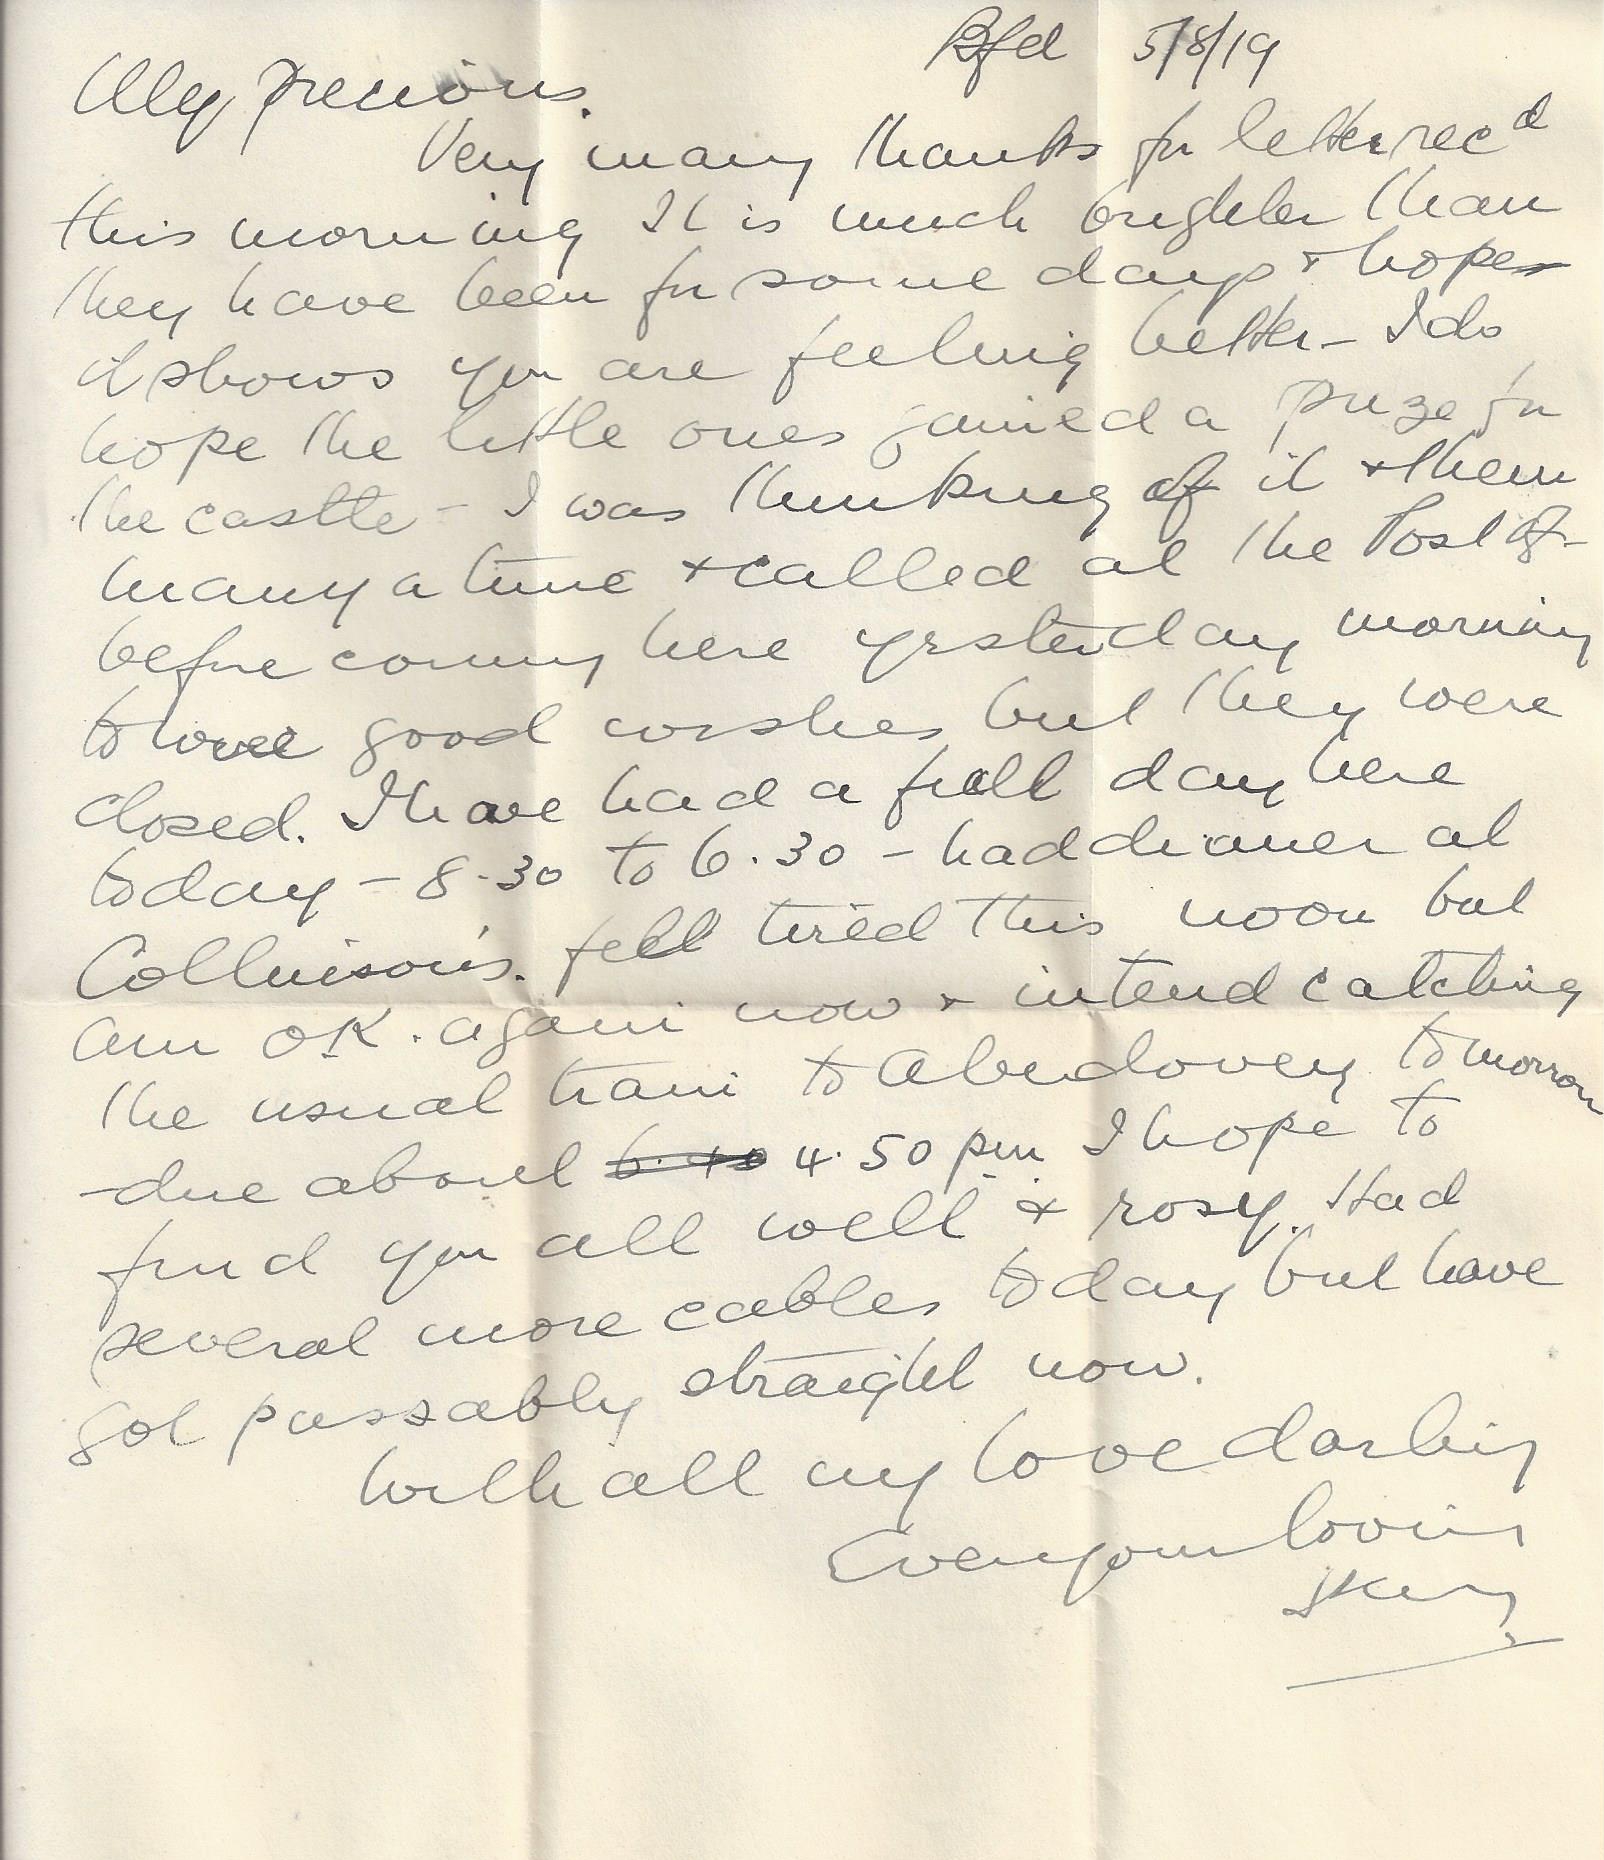 Bfd 5/8/19
My precious.
Very many thanks for letter recd
this morning It is much brighter than
they have been for some days & hope
it shows you are feeling better - I do
hope the little ones gained a prize for
the castle - I was thinking of it & them
many a time & called at the Post Of-
before coming here yesterday morning
to wire good wishes but they were
closed. I have had a full day here
today - 8.30 to 6.30 - had dinner at
Collinson's. felt tired this noon but
am OK. again now & intend catching
the usual train to Aberdovey tomorrow
-due about 4.50 pm I hope to
find you all well & rosy. Had
several more cables today but have
got passably straight now.
With all my love darling
Ever your loving